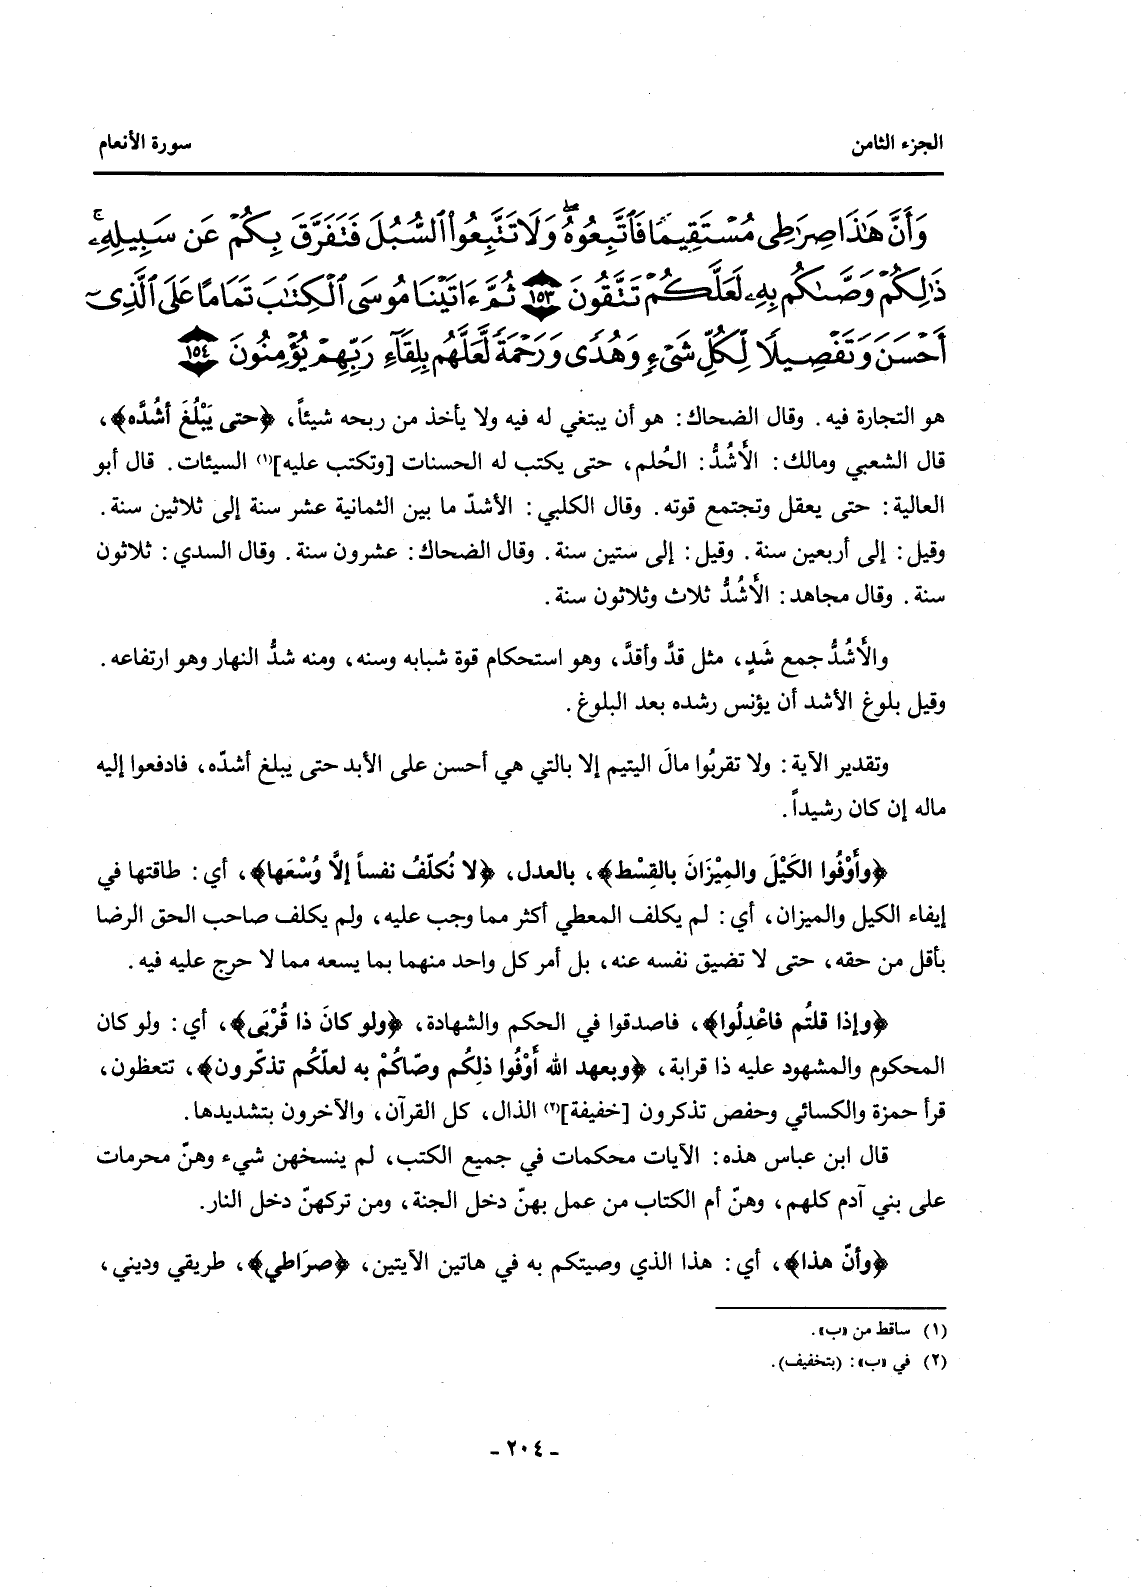 الجزء الثامن
سورة الأنعام
وَأَنَّ هَٰذَا صِرَٰطِي مُسْتَقِيمًا فَٱتَّبِعُوهُ ۖ وَلَا تَتَّبِعُوا۟ ٱلسُّبُلَ فَتَفَرَّقَ بِكُمْ عَن سَبِيلِهِۦ ۚ
ذَٰلِكُمْ وَصَّىٰكُم بِهِۦ لَعَلَّكُمْ تَتَّقُونَ ١٥٣ ثُمَّ ءَاتَيْنَا مُوسَى ٱلْكِتَٰبَ تَمَامًا عَلَى ٱلَّذِىٓ
أَحْسَنَ وَتَفْصِيلًا لِّكُلِّ شَىْءٍ وَهُدًى وَرَحْمَةً لَّعَلَّهُم بِلِقَآءِ رَبِّهِمْ يُؤْمِنُونَ ١٥٤
هو التجارة فيه. وقال الضحاك: هو أن يبتغي له فيه ولا يأخذ من ربحه شيئاً، ﴿حتى يَبْلُغَ أشُدَّه﴾،
قال الشعبي ومالك: الأَشُدُّ: الحُلم، حتى يكتب له الحسنات [وتكتب عليه](١) السيئات. قال أبو
العالية: حتى يعقل وتجتمع قوته. وقال الكلبي: الأشدّ ما بين الثمانية عشر سنة إلى ثلاثين سنة.
وقيل: إلى أربعين سنة. وقيل: إلى ستين سنة. وقال الضحاك: عشرون سنة. وقال السدي: ثلاثون
سنة. وقال مجاهد: الأَشُدُّ ثلاث وثلاثون سنة.
والأَشُدُّ جمع شَدٍ، مثل قدَّ وأقدَّ، وهو استحكام قوة شبابه وسنه، ومنه شدُّ النهار وهو ارتفاعه.
وقيل بلوغ الأشد أن يؤنس رشده بعد البلوغ.
وتقدير الآية: ولا تقربُوا مالَ اليتيم إلا بالتي هي أحسن على الأبد حتى يبلغ أشدّه، فادفعوا إليه
ماله إن كان رشيداً.
﴿وأَوْفُوا الكَيْلَ والمِيْزَانَ بالقِسْط﴾، بالعدل، ﴿لا نُكلّفُ نفساً إلَّا وُسْعَها﴾، أي: طاقتها في
إيفاء الكيل والميزان، أي: لم يكلف المعطي أكثر مما وجب عليه، ولم يكلف صاحب الحق الرضا
بأقل من حقه، حتى لا تضيق نفسه عنه، بل أمر كل واحد منهما بما يسعه مما لا حرج عليه فيه.
﴿وإذا قلتُم فاعْدِلُوا﴾، فاصدقوا في الحكم والشهادة، ﴿ولو كانَ ذا قُرْبَى﴾، أي: ولو كان
المحكوم والمشهود عليه ذا قرابة، ﴿وبعهد الله أَوْفُوا ذلِكُم وصّاكُمْ به لعلّكُم تذكّرون﴾، تتعظون،
قرأ حمزة والكسائي وحفص تذكرون [خفيفة](٢) الذال، كل القرآن، والآخرون بتشديدها.
قال ابن عباس هذه: الآيات محكمات في جميع الكتب، لم ينسخهن شيء وهنّ محرمات
على بني آدم كلهم، وهنّ أم الكتاب من عمل بهنّ دخل الجنة، ومن تركهنّ دخل النار.
﴿وأنّ هذا﴾، أي: هذا الذي وصيتكم به في هاتين الآيتين، ﴿صرَاطي﴾، طريقي وديني،
(١) ساقط من «ب».
(٢) في «ب»: (بتخفيف).
- ٢٠٤ -